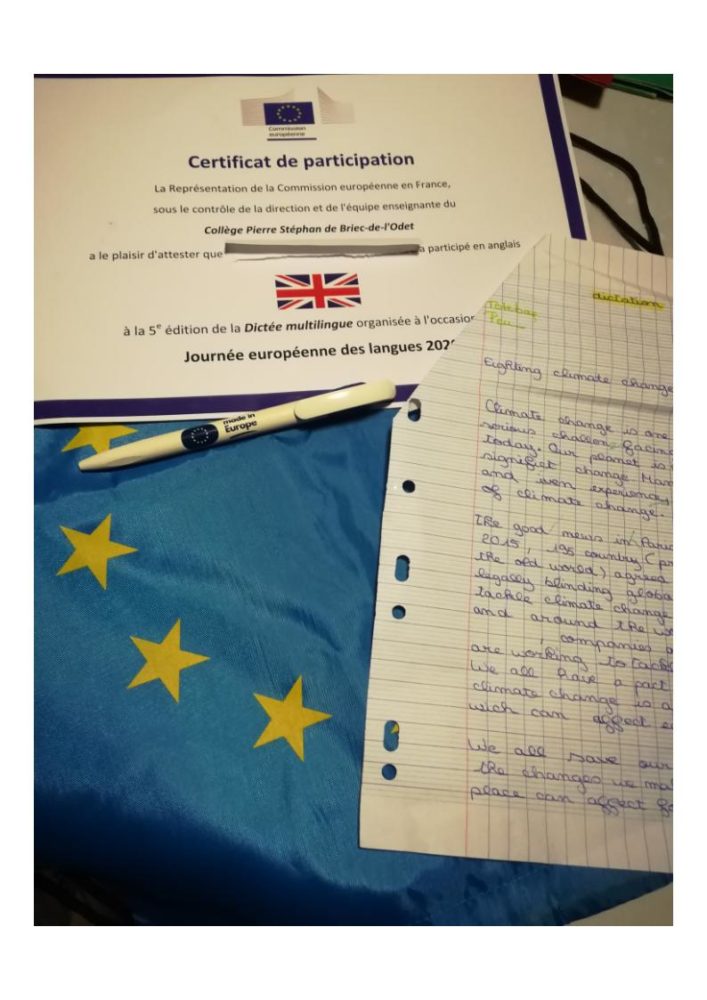 Commission
européenne
Certificat de participation
La Représentation de la Commission européenne en France,
sous le contrôle de la direction et de l'équipe enseignante du
Collège Pierre Stéphan de Briec-de-l'Odet
a le plaisir d'attester que a participé en anglais
à la 5e édition de la Dictée multilingue organisée à l'occasion
Journée européenne des langues
made in
Europe
dictation
Fighting climate change
Climate change is one
serious challen facing
today. Our planet is
signifiet change
and
of climate change.
The good news in
2015, 195 country
the old world) agreed
legally blinding
tackle climate change
and around the
companies
are working to
We all have a part
climate change is a
wich can affect
We all save our
the changes we
place can affect